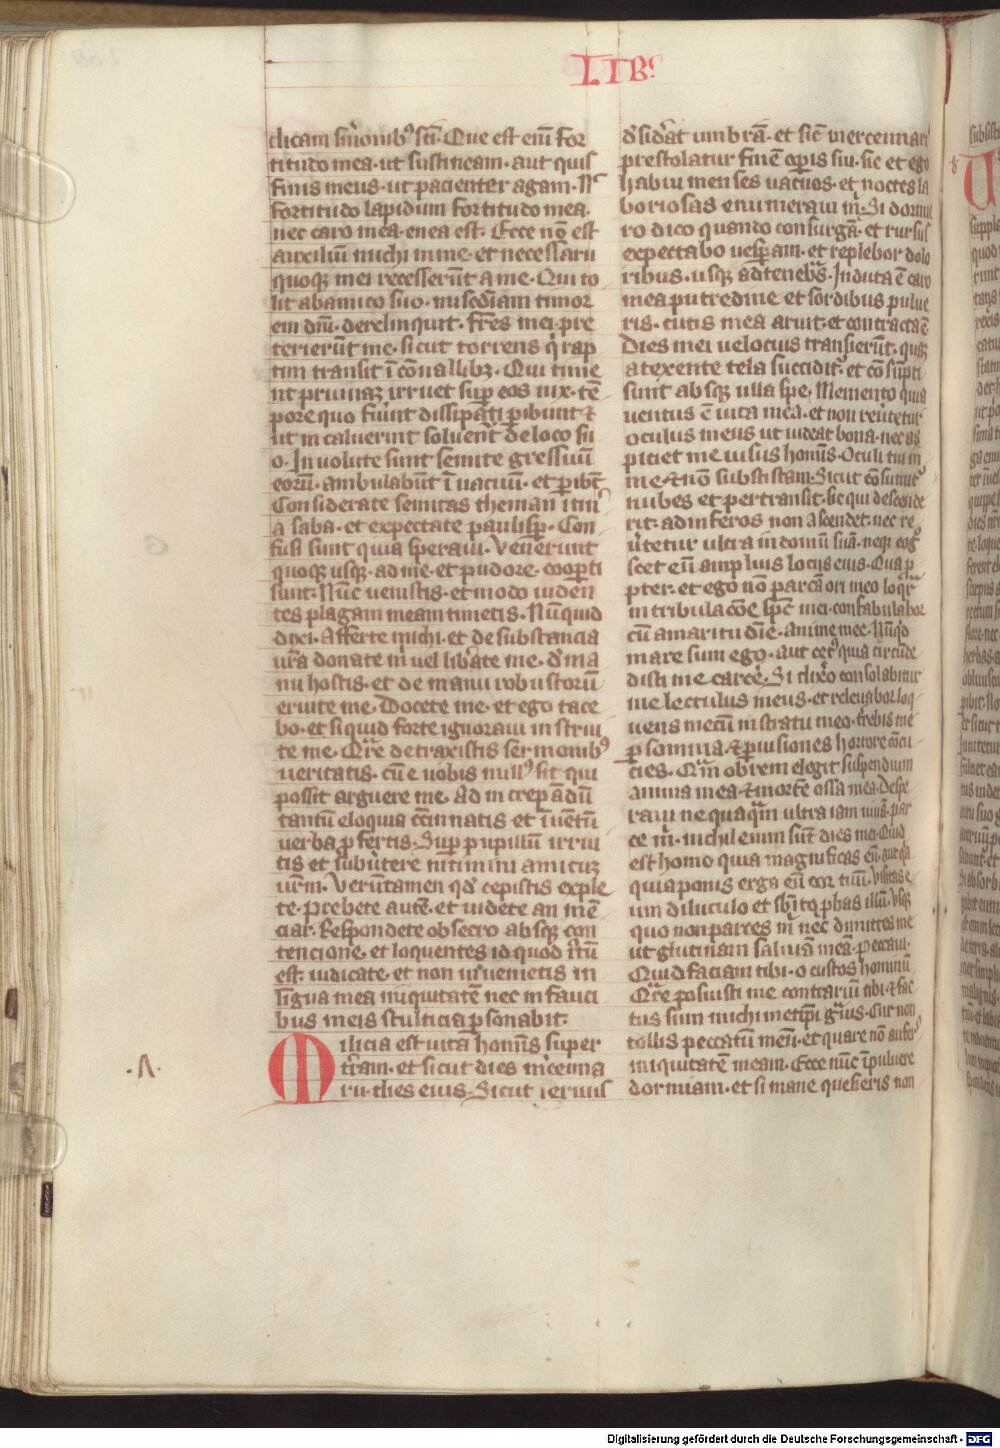 LIBꝰ
dicam sermonibꝰ sc̄i. Que est eni᷑ for
titudo mea. ut sustineam. aut quis
finis meus. ut pacienter agam. Nͨ
fortitudo lapidum fortitudo mea.
nec caro mea enea est. Ecce nō est
auxiliū michi in me. et necessarii
quoqꝫ mei recesserūt a me. Qui to
lit ab amico suo. misc̄diam timor
em dn̄i. derelinquit. Fr̄es mei pre
terierūt me. sicut torrens q̇ rap
tim transit ī cōuallibꝫ. Qui time
nt pruinaꝫ irruet sup̱ eos nix. tē
pore quo fu̇int dissipati p̱ibunt ⁊
ut incaluerint soluent᷑ de loco su
o. Inuolute sunt semite gressuū
eorū. ambulabūt ī uacuū. et p̱ibt̄.
Considerate semitas theman itin̄͛
a saba. et expectate paulisp̱. Con
fusi sunt quia speraui. Venerunt
quoqꝫ usqꝫ. ad me. et pudore. coop̱ti
sunt. Nūc uenistis. et modo uiden
tes plagam meam timetis. Nūquid
dixi. Afferte michi. et de substancia
ur̄a donate m̄ uel lib̄ate me. d̄ ma
nu hostis. et de manu robustorū
eruite me. Docete me. et ego tace
bo. et si quid forte ignoraui instrui
te me. Qͣre detraxistis sermonibꝰ
ueritatis. cū e uobis nullꝰ sit qui
possit arguere me. Ad increpādū
tantū eloquia cc̄innatis et ī uentū
uerba p̱fertis. Sup̱ pupillū irrui
tis et subu̇tere nitimini amicuꝫ
ur̄m. Verūtamen qd̄ cepistis exple
te. Prebete autē. et uidete an mē
ciar. Respondete obsecro absqꝫ con
tencione. et loquentes id quod ı̄tū
est. iudicate. et non inuenietis in
lı̄gua mea iniquitatē nec in fauci
bus meis stulticia p̱sonabit.
Milicia est uita hom̄is super
tr̄am. et sicut dies mr̄cenna
rii. dies eius. Sicut seruus
.Λ.
d̄sid̄at umbrā. et sic̄ mercennari᷑
prestolatur finē op̱is sui. sic et ego
habui menses uacuos. et noctes la
boriosas enumeraui m̄. Si dormie
ro dico quando consurgā. et rursus
expectabo uesp̱am. et replebor dolo
ribus. usqꝫ ad tenebr̄s. Induta ē caro
mea putredine et sordibus pulue
ris. cutis mea aruit. et contracta ē
Dies mei uelocius transierūt. quaꝫ
a texente tela succidit᷑. et cōsūpti
sunt absqꝫ ulla spe. Memento quia
uentus ē uita mea. et non reu̇tetur
oculus meus ut uideat bona. nec as
piciet me uisus hom̄is. Oculi tui in
me. et nō subsistam. Sicut cōsumit᷑
nubes et pertransit. sic qui descende
rit. ad inferos non ascendet. nec re
u̇tetur ultra in domū suā. neqꝫ cog̊
scet eū amplius locus eius. Qua p
pter. et ego nō parcā ori meo loqͬ
in tribulac̄oe sp̄c mei. confabulabor
cū amaritudīe. anime mee. Nūqd
mare sum ego. aut cet᷑ quia circūde
disti me carc̄e. Si dixēo consolabitur
me lectulus meus. et releuabor loq
uens mecū in stratu meo. trebis me
p̱ sompnia. ⁊ p̱ uisiones horrore cōcu
cies. Qͣm obrem elegit suspendium
anima mea. ⁊ mortē ossa mea. Despe
raui nequaqͣm ultra iam uiuā. par
ce m̄. nichil enim sūt dies mei. Quid
est homo quia magnificas eū. aut qͣ
quia ponis erga eū cor tuū. Visitas e
um diluculo et sb̄ito p̱bas illū. Vsqꝫ
quo non parces m̄ nec dimittes me
ut glutinam saliuā meā. Peccaui.
Quid faciam tibi. o custos hominū
Qͣre posuisti me contrariū tibi. ⁊ fac
tus sum michimetip̄i gͣuis. Cur non
tollis peccatū meū. et quare nō aufer᷑
iniquitatē meam. Ecce nūc ī puluere
dormiam. et si mane quesieris non
Digitalisierung gefördert durch die Deutsche Forschungsgemeinschaft - DFG